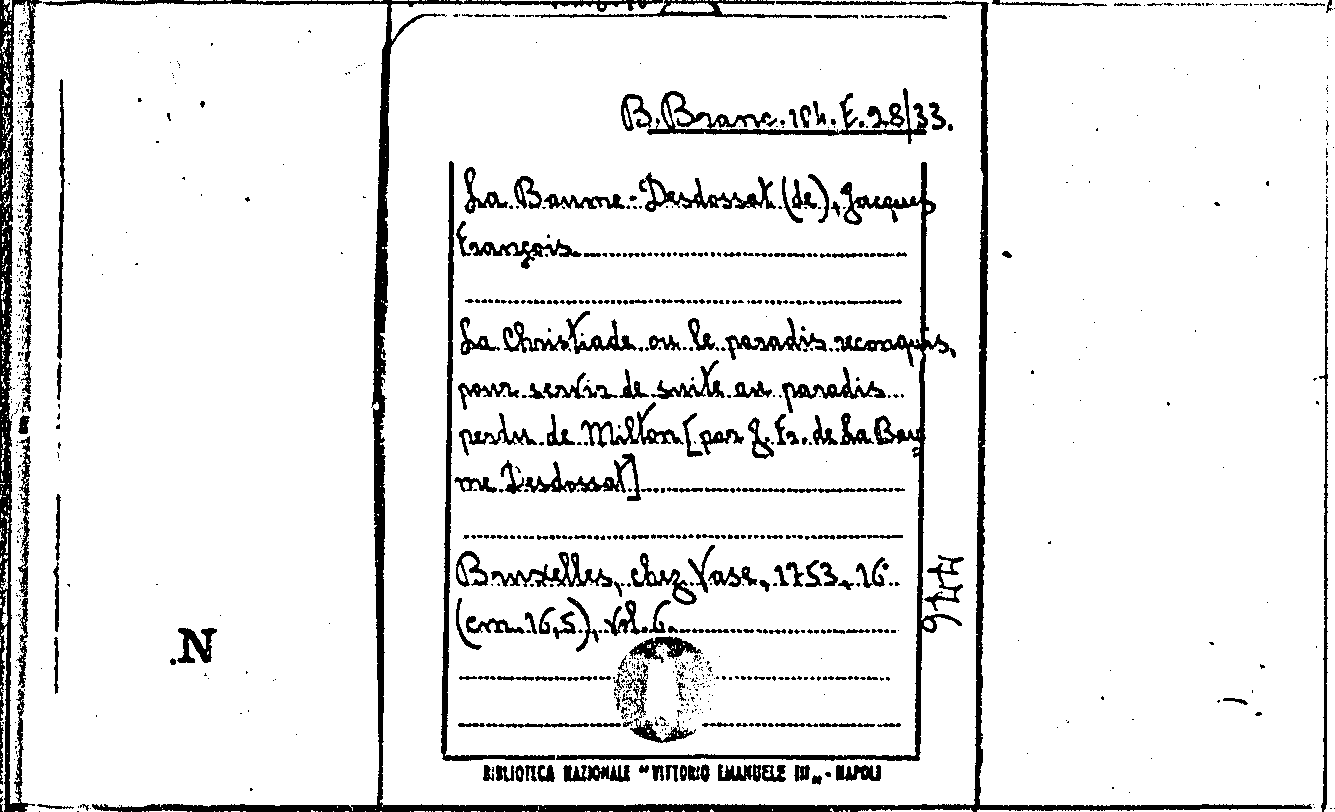 B. Branc. 104. E. 28/33.
La Baume-Desdossat (de), Jacques
François
La Christiade ou le paradis reconquis,
pour servir de suite au paradis
perdu de Milton [par J. Fr. de La Bau=
me Desdossat]
Bruxelles, chez Vase, 1753, 16°
(cm. 16,5), vol. 6.
.N
BIBLIOTECA NAZIONALE "VITTORIO EMANUELE III" - NAPOLI